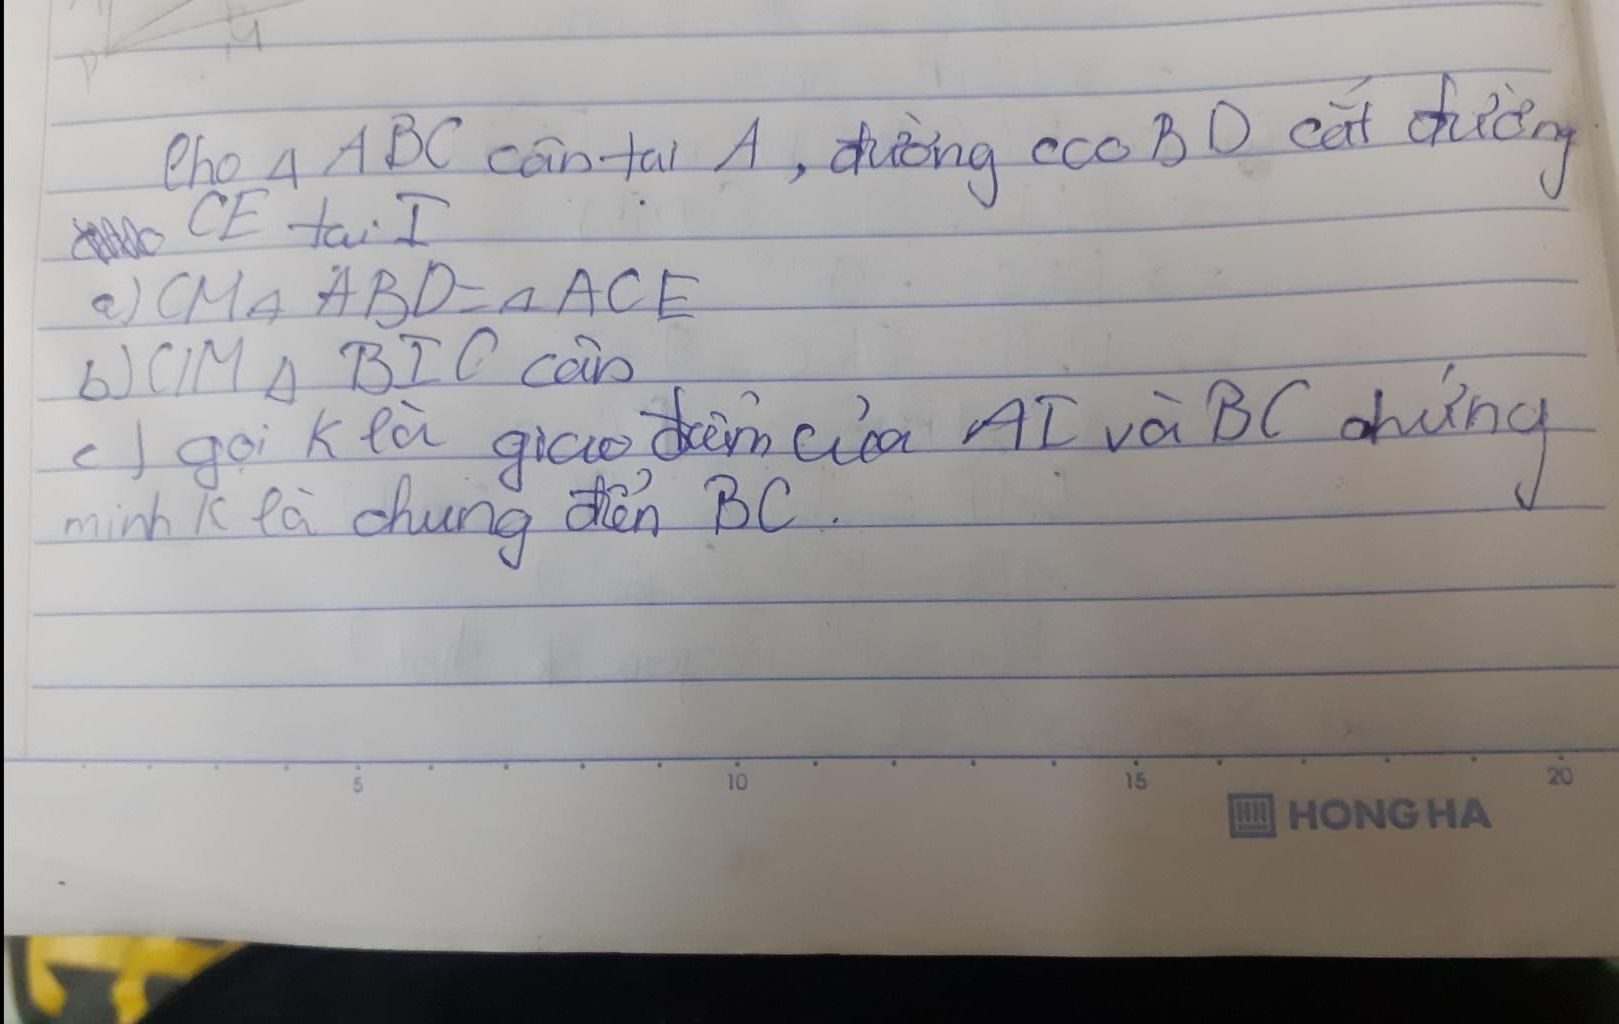 Cho Δ ABC cân tại A, đường cao BD cắt đường
CE tại I
a) CM Δ ABD = Δ ACE
b) CM Δ BIC cân
c) gọi K là giao điểm của AI và BC chứng
minh K là chung điển BC.
5 10 15 20
HONG HA